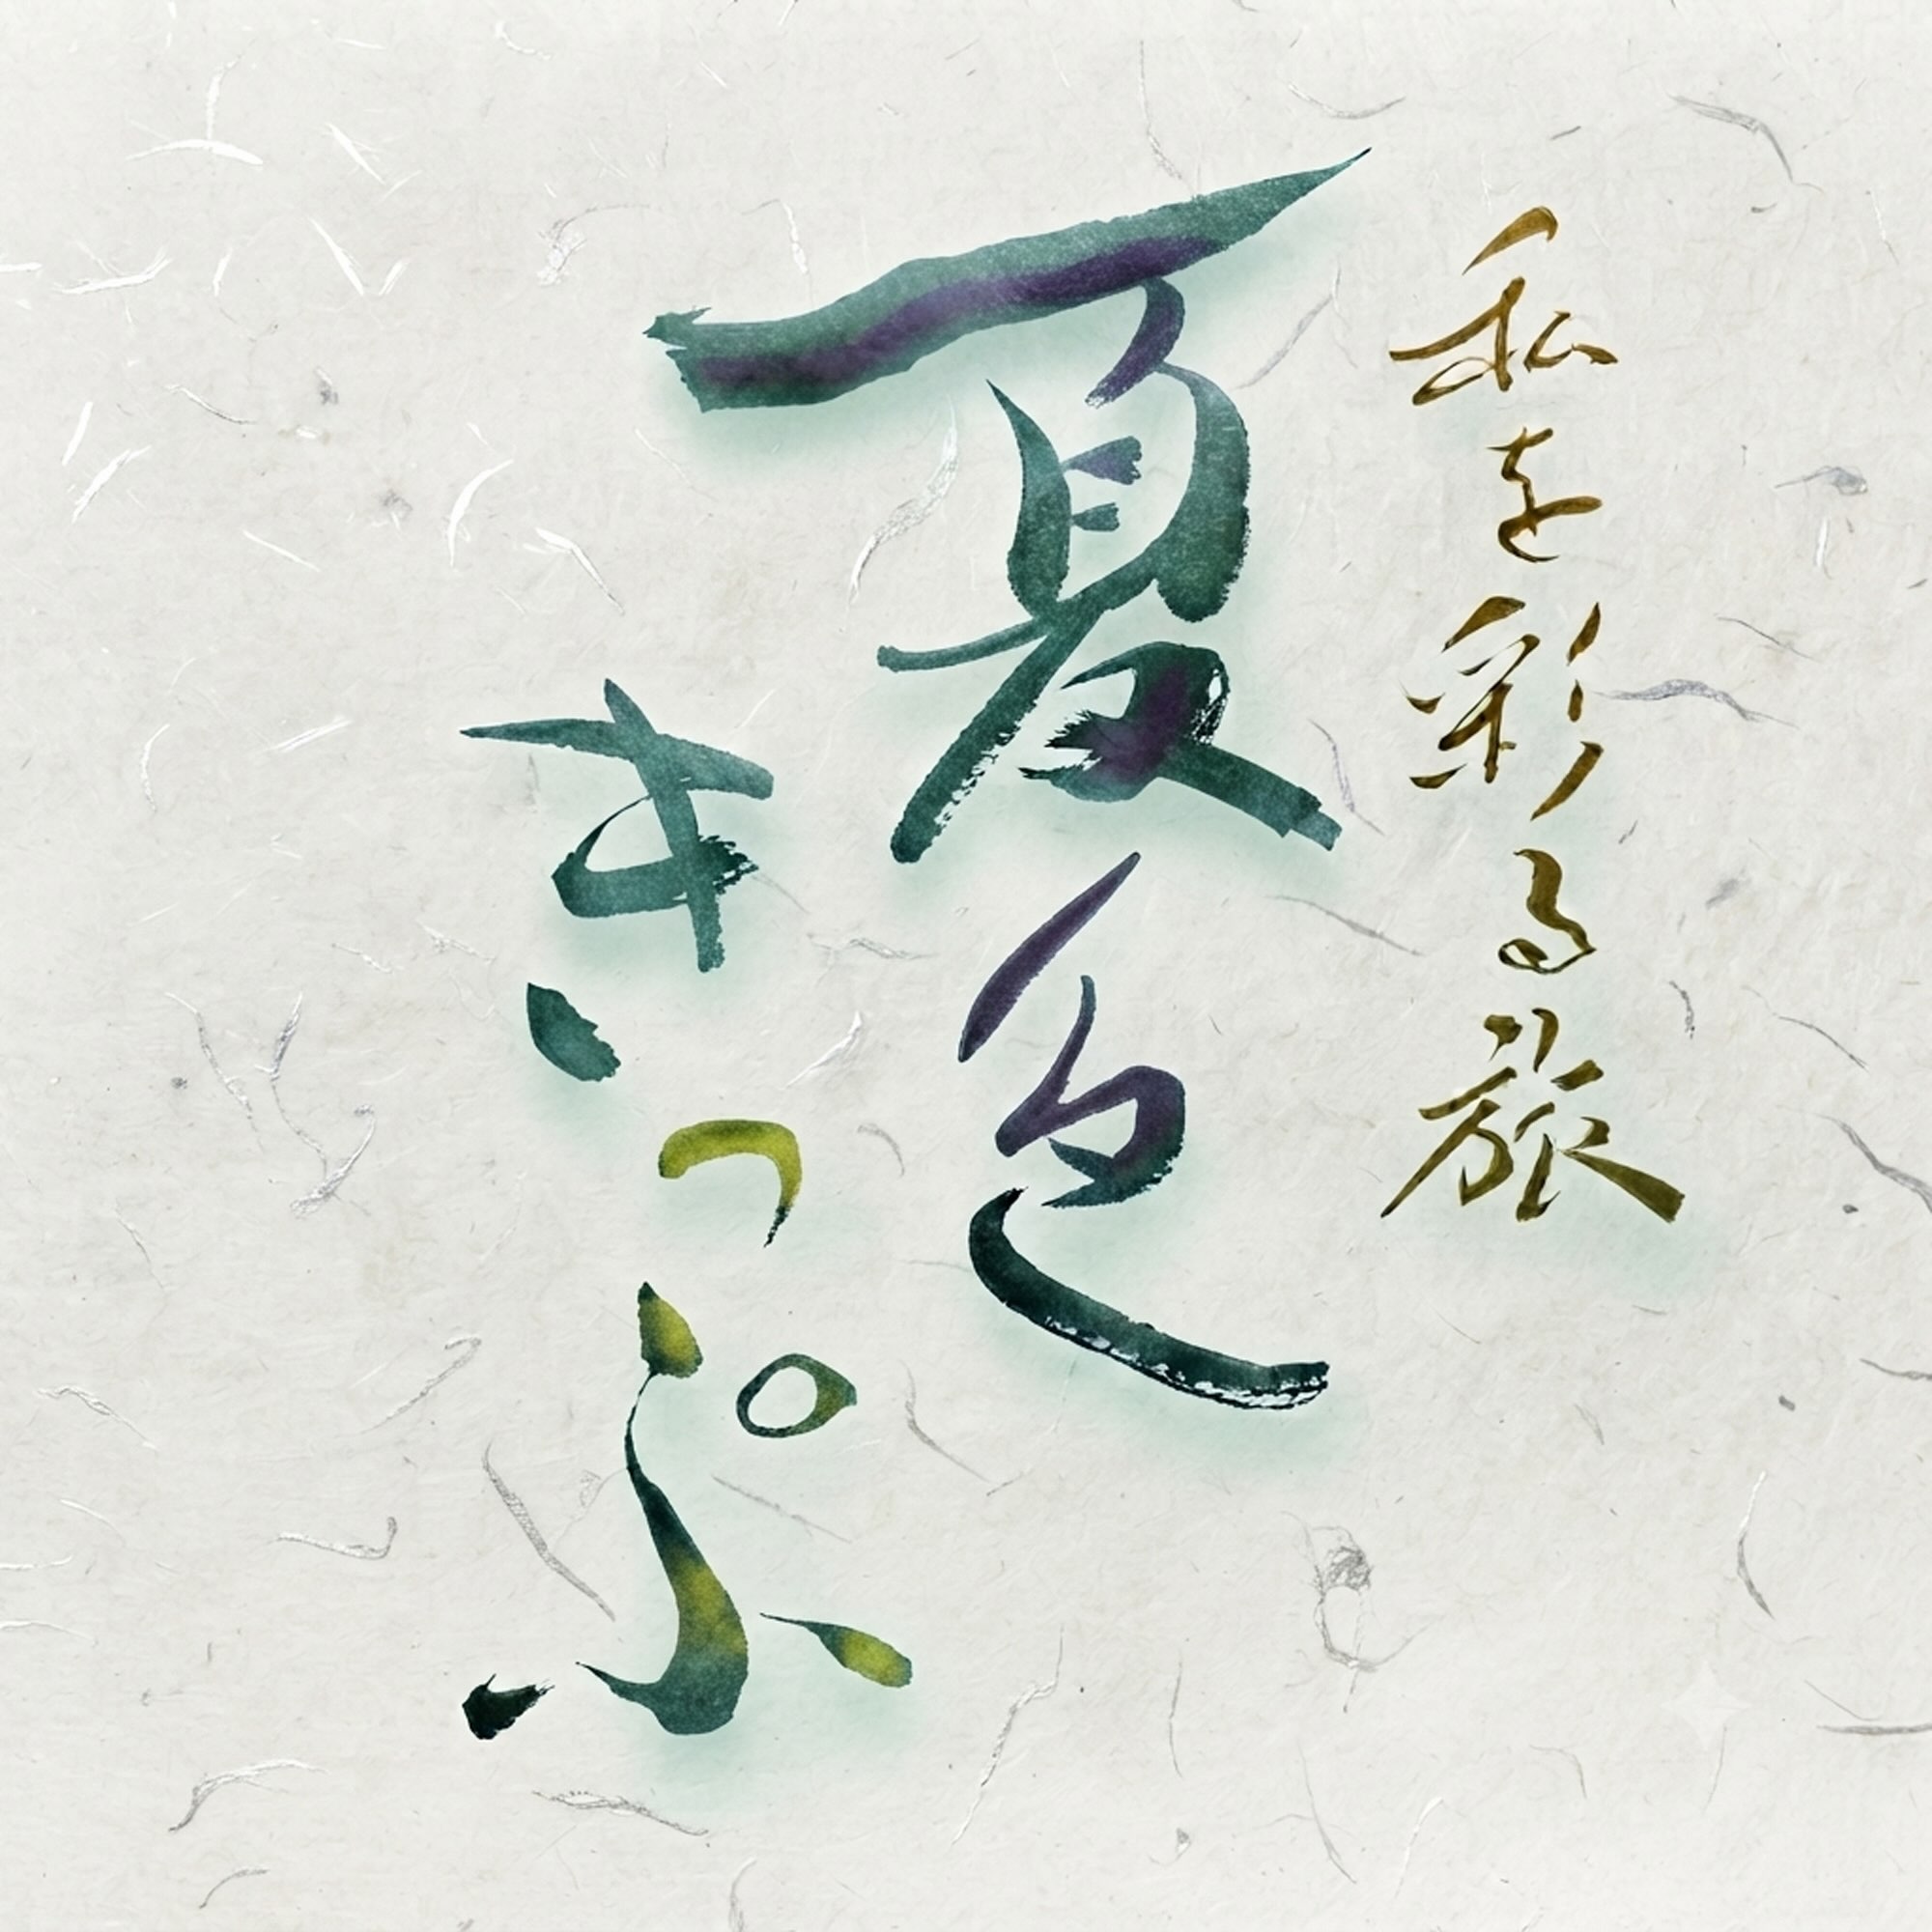 私を彩る旅
夏色
きっぷ